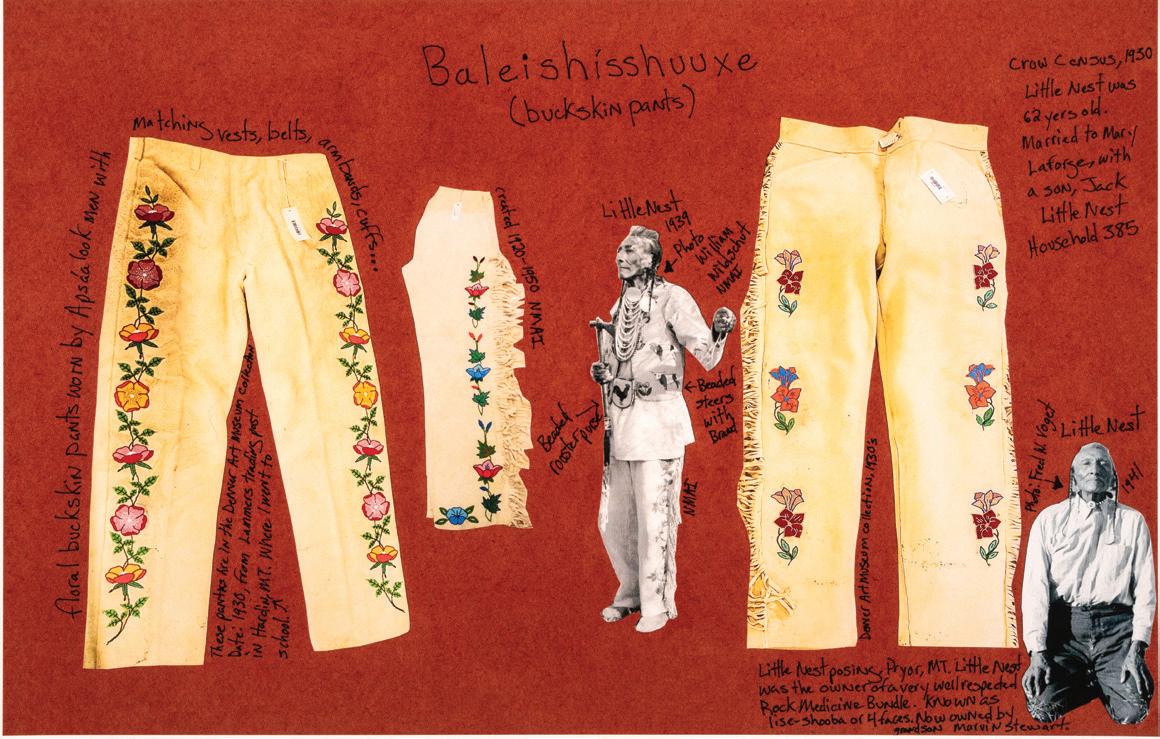 Baleishisshuuxe
(buckskin pants)
floral buckskin pants worn by Apsáalooke men with
Matching vests, belts, armbands, cuffs....
These pants are in the Denver Art Museum collection
Date: 1930, from Lammers trading post
in Hardin, MT. Where I went to
school.
created 1920-1950 NMAI
Little Nest
1939
Photo
William
Wildschut
NMAI
Beaded
rooster purse
← Beaded
steers
with
Brand
NMAI
Denver Art Museum collections, 1930's
Crow Census, 1930
Little Nest was
62 yers old.
Married to Mary
Laforge, with
a son, Jack
Little Nest
Household 385
Little Nest
Photo: Fred W. Voget
1941
Little Nest posing, Pryor, MT. Little Nest
was the owner of a very well respected
Rock Medicine Bundle. Known as
Iise-shooba or 4 faces. Now owned by
grandson Marvin Stewart.